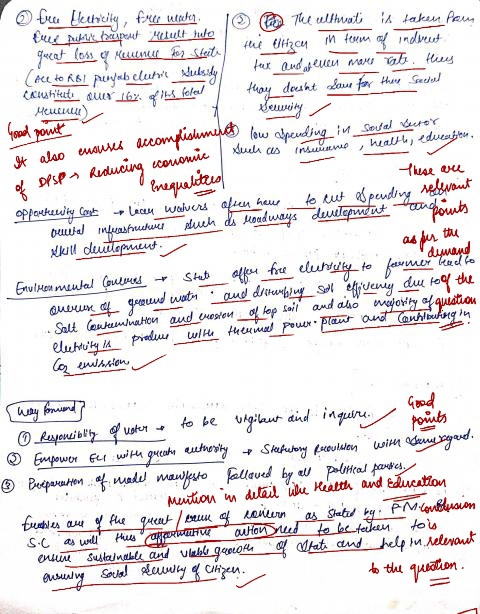 ② free Electricity, free water.
free public transport result into
great loss of revenue for state
(acc to RBI punjab electric subsidy
constitute over 16% of its total
revenue)
Good point
It also ensures accomplishment
of DPSP → Reducing economic
Inequalities
③ The ultimate is taken from
the citizen in term of indirect
tax and even more rate. thus
they doesnt save for their social
security
low spending in social sector
such as insurance, health, education.
These are
relevant
points
as per the
demand
of the
question
opportunity cost → loan waivers often have to cut spending
infrastructure such as roadways development and
skill development.
Environmental concerns → State offer free electricity to farmer lead to
overuse of ground water. and disturbing soil efficiency due to
Salt contamination and erosion of top soil and also majority of
electricity is produce with thermal power plant and contributing in
CO2 emission
Way forward
① Responsibility of voter → to be vigilant and inquire.
② Empower ECI with greater authority → Statutory provision with same regard.
③ Preparation of model manifesto followed by all political parties.
Good
points
Mention in detail like Health and Education
are of the great cause of concern as stated by PM
S.C as well thus affirmative action need to be taken to
ensure sustainable and viable growth of state and help in
ensuring social security of citizen.
Conclusion
is
relevant
to the question.